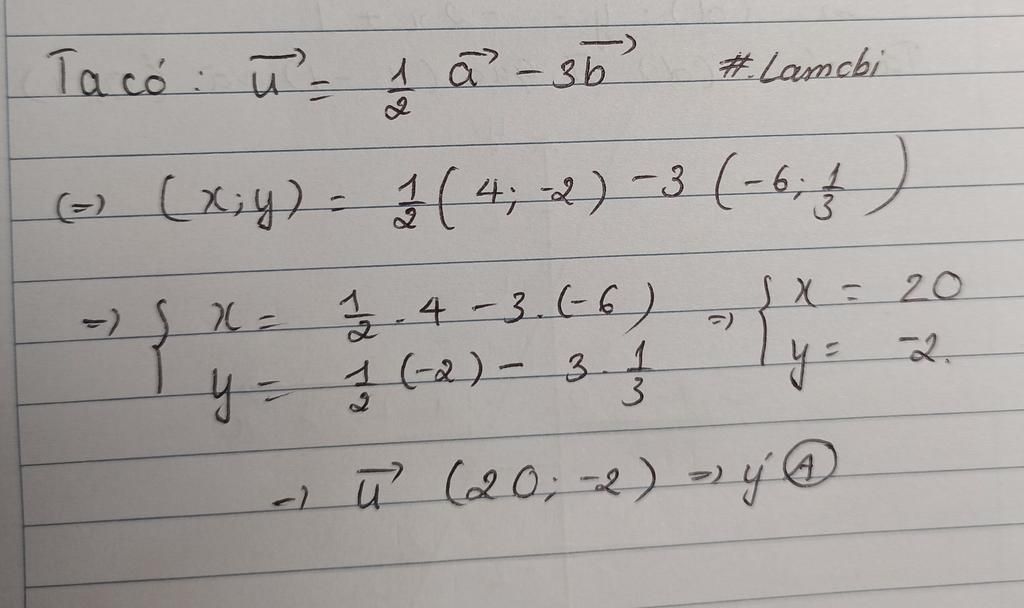 Ta có : $\overrightarrow{u} = \frac{1}{2} \overrightarrow{a} - 3\overrightarrow{b}$ #.Lamcbi
(=) $(x; y) = \frac{1}{2} (4; -2) - 3 (-6; \frac{1}{3})$
=) $\begin{cases} x = \frac{1}{2} . 4 - 3 . (-6) \\ y = \frac{1}{2} (-2) - 3 . \frac{1}{3} \end{cases}$ =) $\begin{cases} x = 20 \\ y = -2. \end{cases}$
=) $\overrightarrow{u} (20; -2)$ =) ý Ⓐ